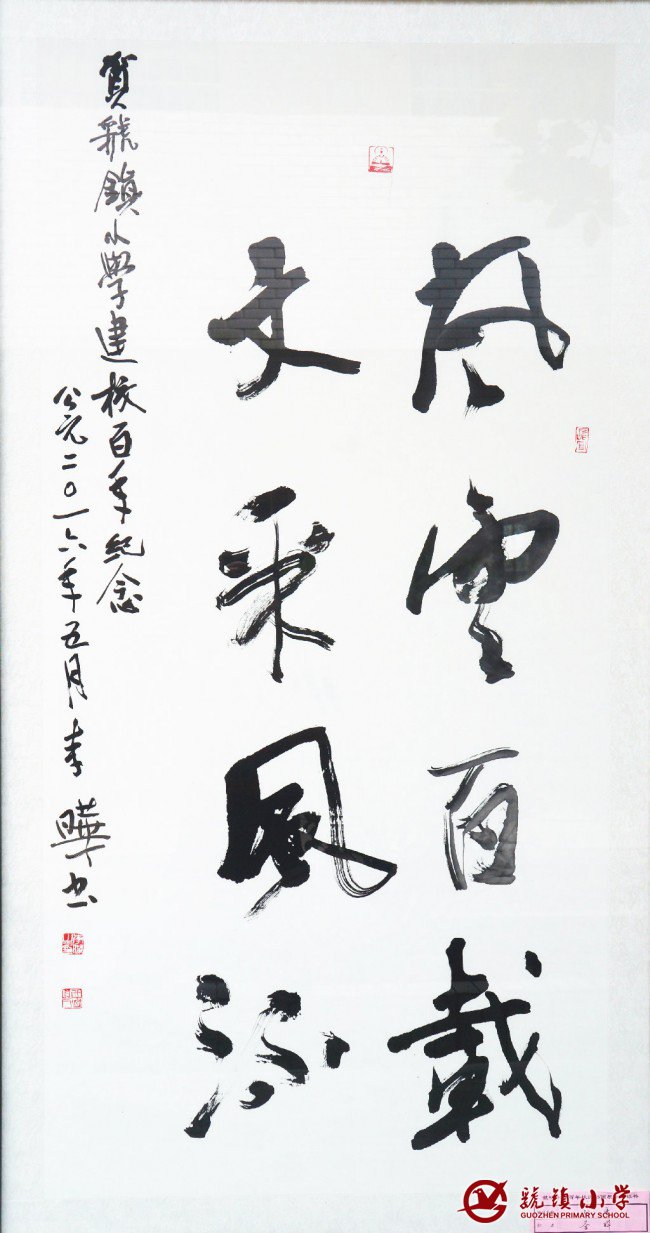 风雲百載
文采風流
賀虢鎮小學建校百年紀念
公元二〇一六年五月李曄书
虢鎮小学
GUOZHEN PRIMARY SCHOOL